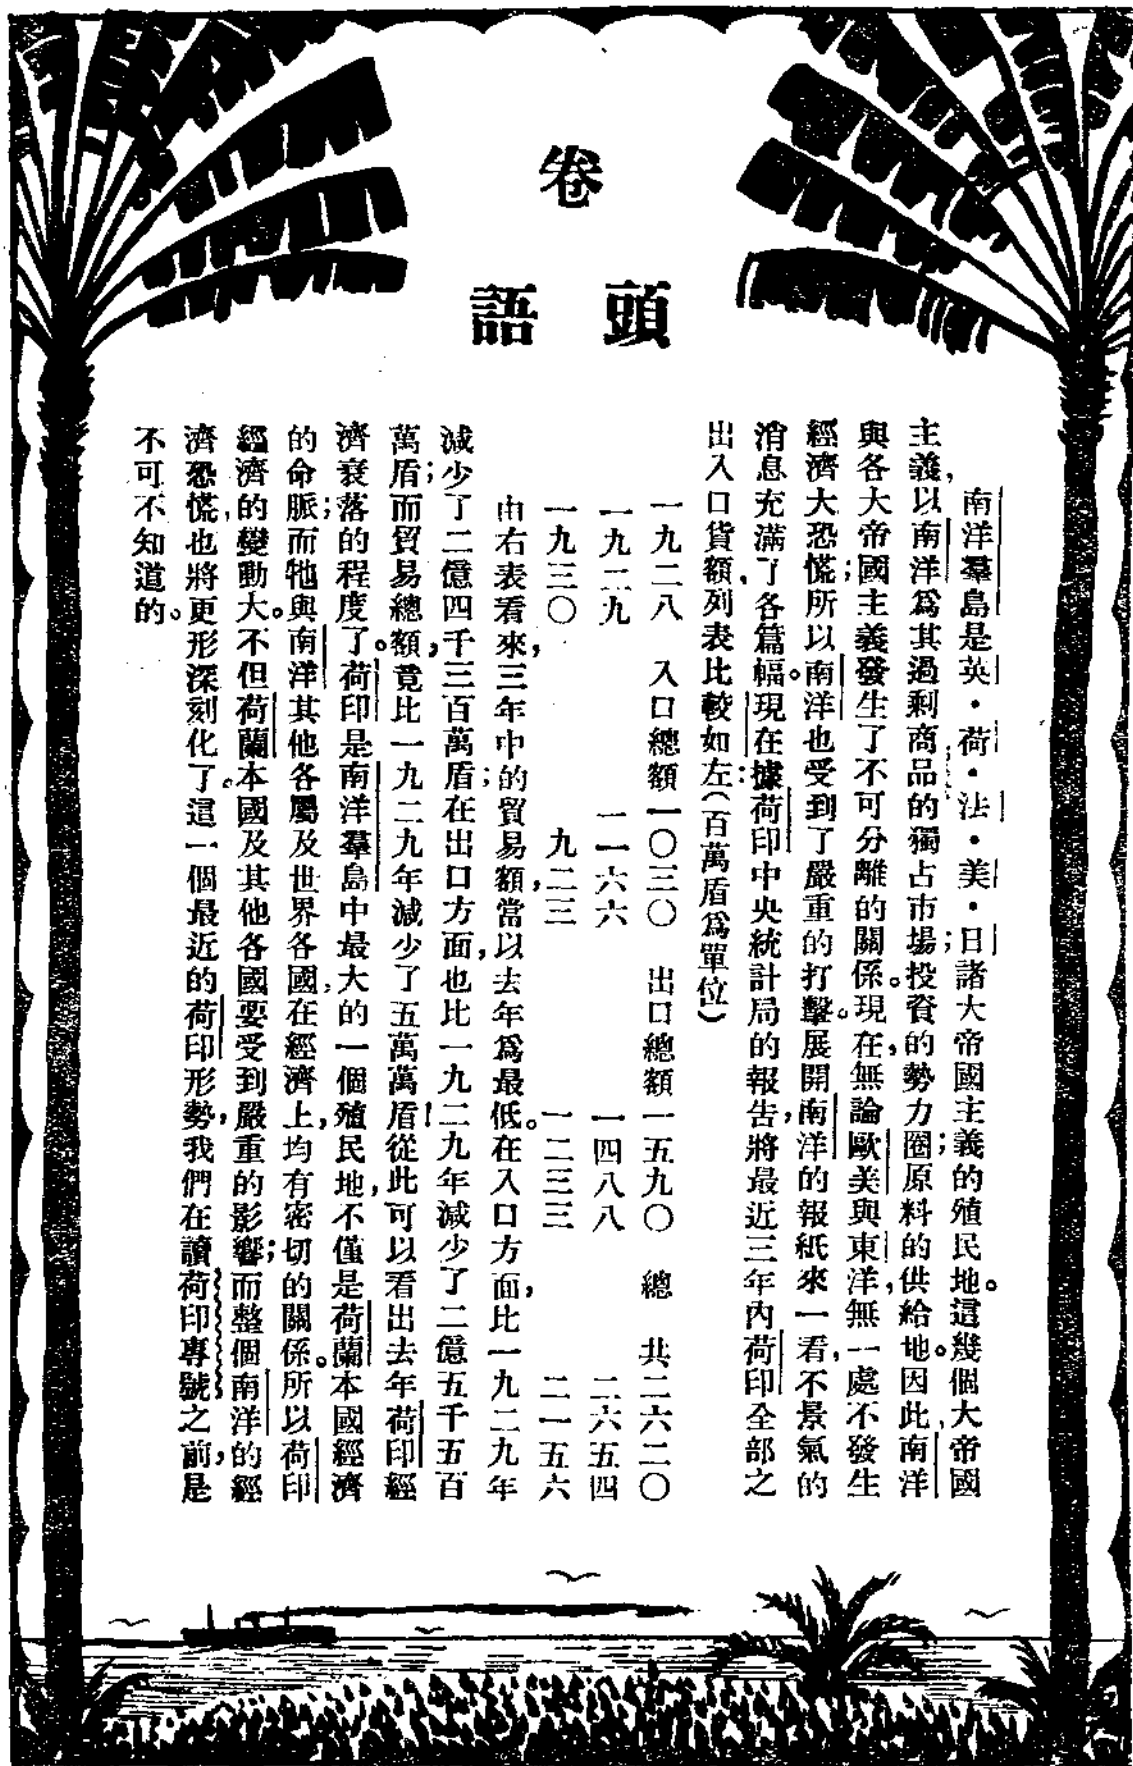 卷
頭
語
南洋羣島是英・荷・法・美・日諸大帝國主義的殖民地。這幾個大帝國
主義，以南洋爲其過剩商品的獨占市場；投資的勢力圈；原料的供給地。因此，南洋
與各大帝國主義發生了不可分離的關係。現在，無論歐美與東洋，無一處不發生
經濟大恐慌；所以南洋也受到了嚴重的打擊。展開南洋的報紙來一看，不景氣的
消息充滿了各篇幅。現在據荷印中央統計局的報告，將最近三年內荷印全部之
出入口貨額，列表比較如左：（百萬盾爲單位）
一九二八　入口總額一〇三〇　出口總額一五九〇　總　共二六二〇
一九二九　一一六六　一四八八　二六五四
一九三〇　九二三　一二三三　二一五六
由右表看來，三年中的貿易額，當以去年爲最低。在入口方面，比一九二九年
減少了二億四千三百萬盾；在出口方面，也比一九二九年減少了二億五千五百
萬盾；而貿易總額，竟比一九二九年減少了五萬萬盾！從此可以看出去年荷印經
濟衰落的程度了。荷印是南洋羣島中最大的一個殖民地，不僅是荷蘭本國經濟
的命脈；而牠與南洋其他各屬及世界各國，在經濟上，均有密切的關係。所以荷印
經濟的變動大。不但荷蘭本國及其他各國要受到嚴重的影響；而整個南洋的經
濟恐慌，也將更形深刻化了。這一個最近的荷印形勢，我們在讀荷印專號之前，是
不可不知道的。